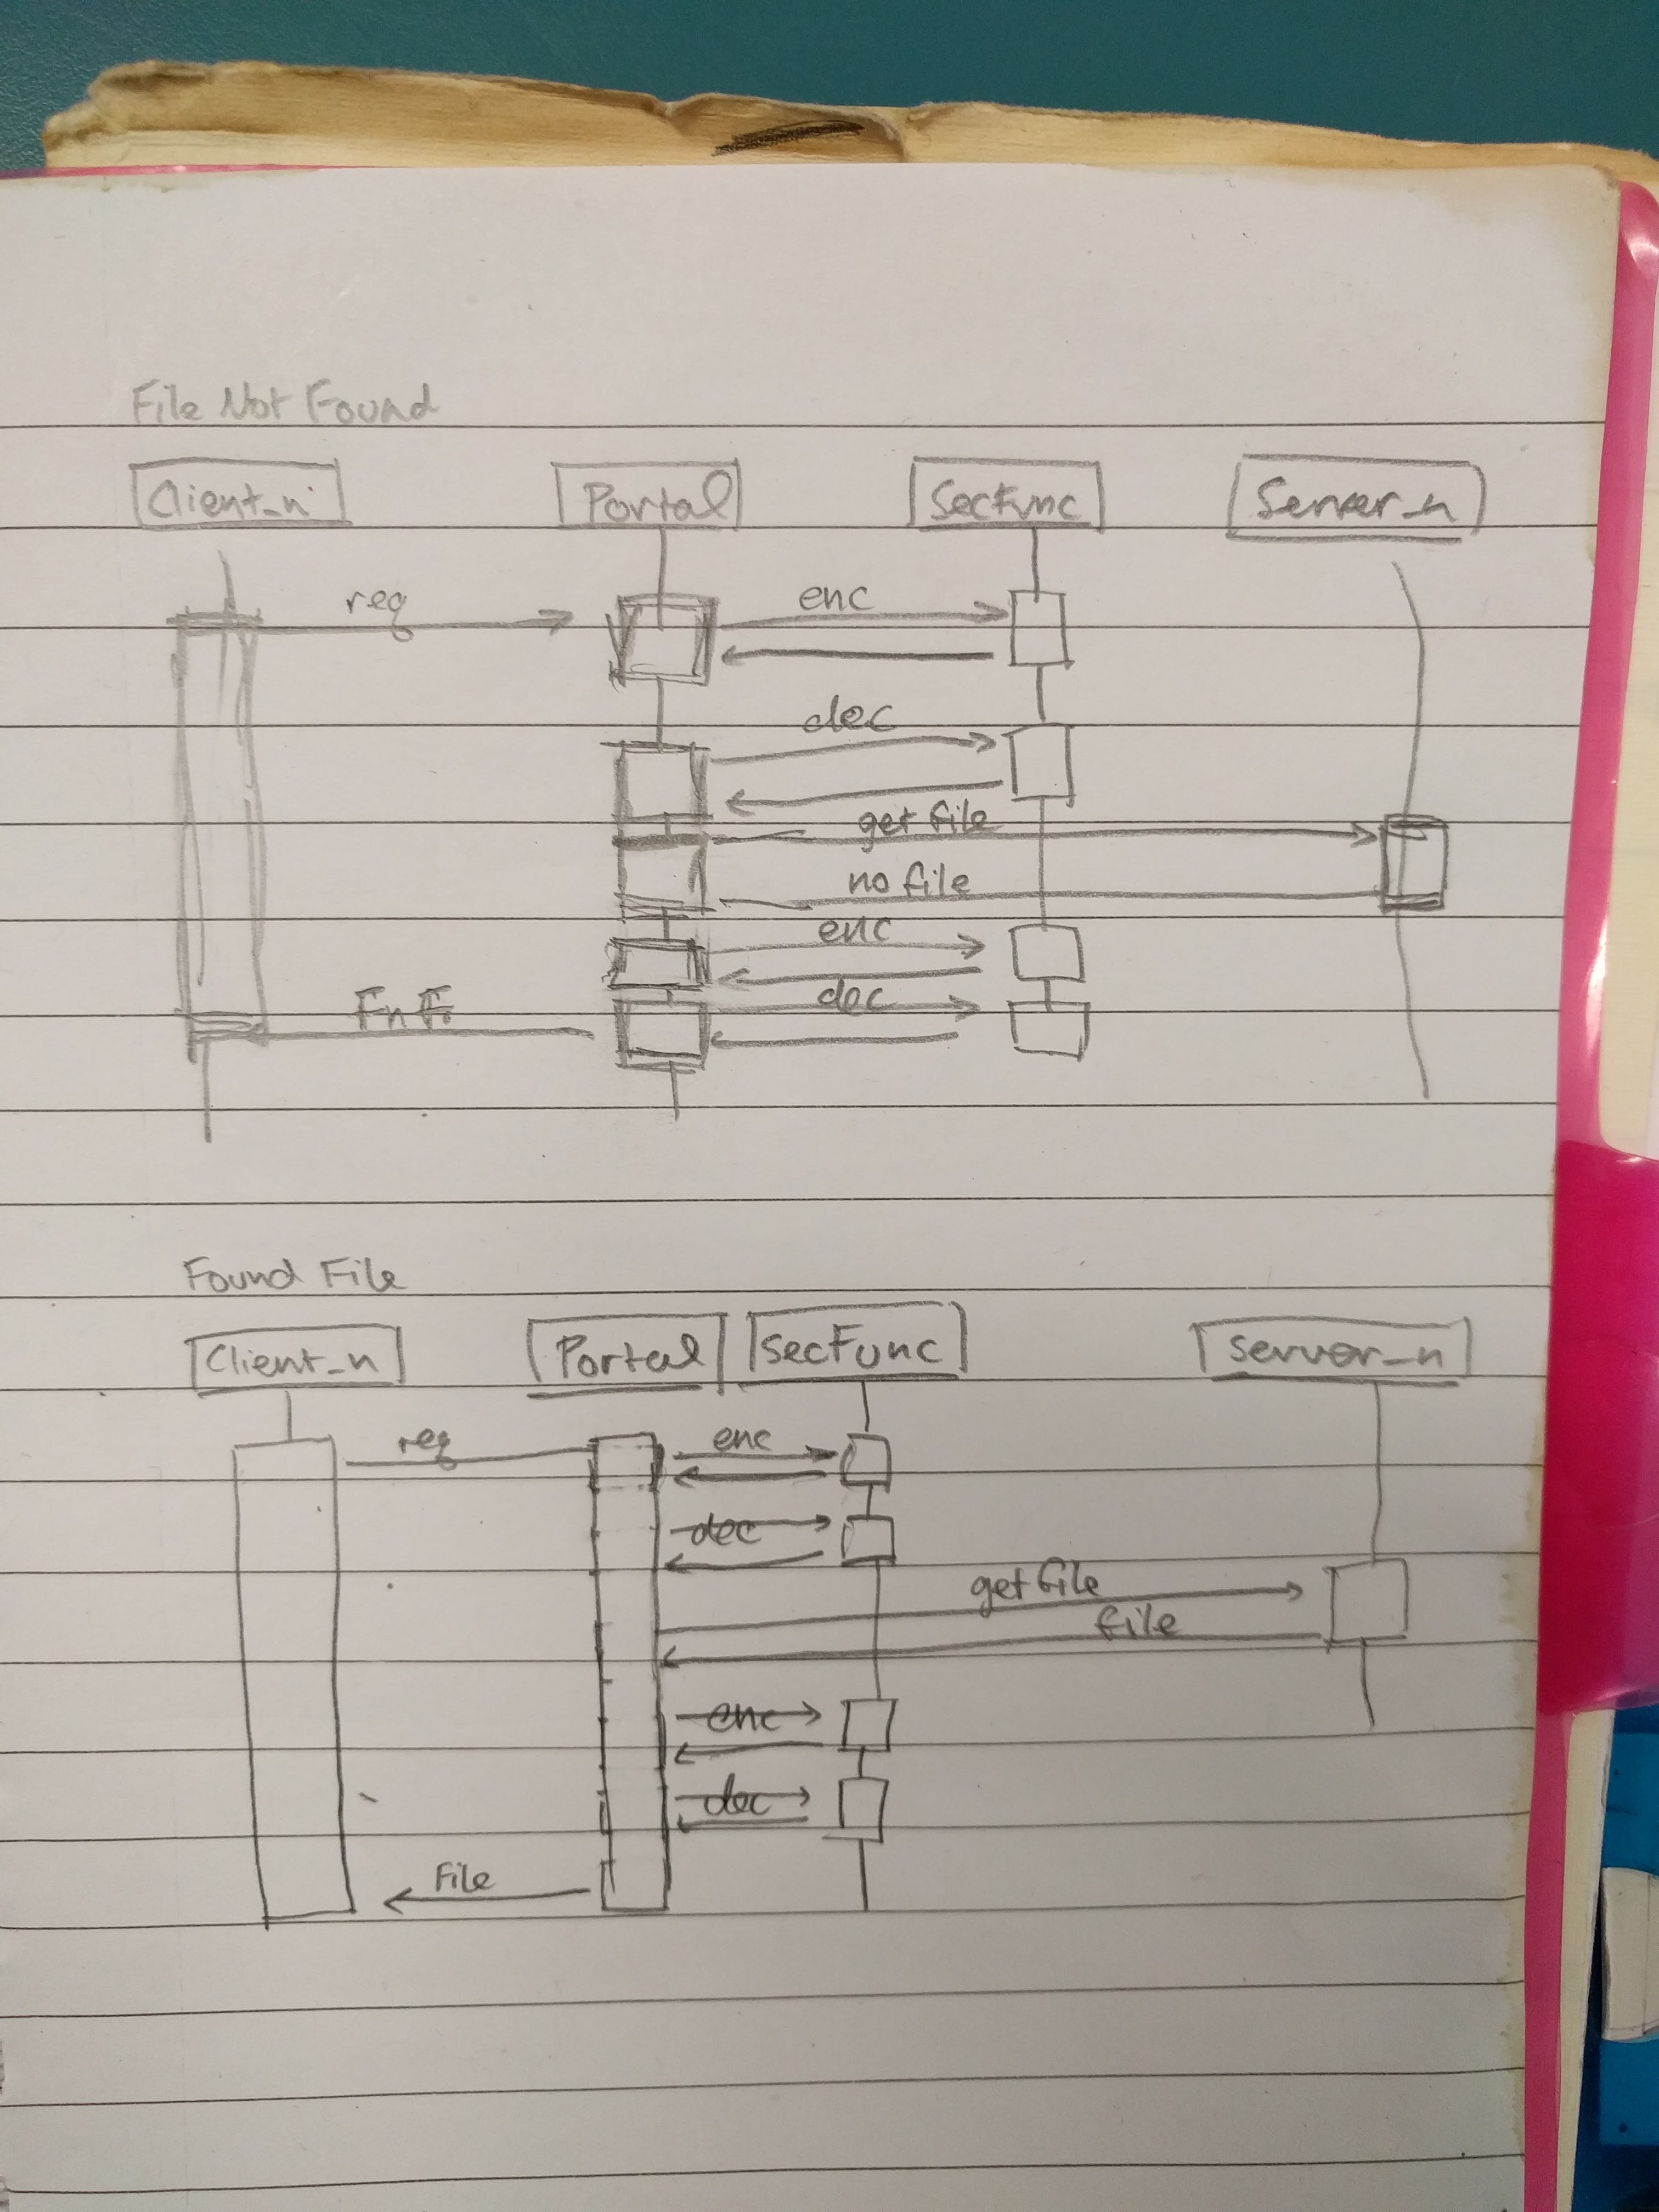 File Not Found
Client_n Portal SecFunc Server_n
req enc
dec
get file
no file
enc
FnF dec
Found File
Client_n Portal secFunc server_n
req enc
dec
get file
file
enc
dec
File